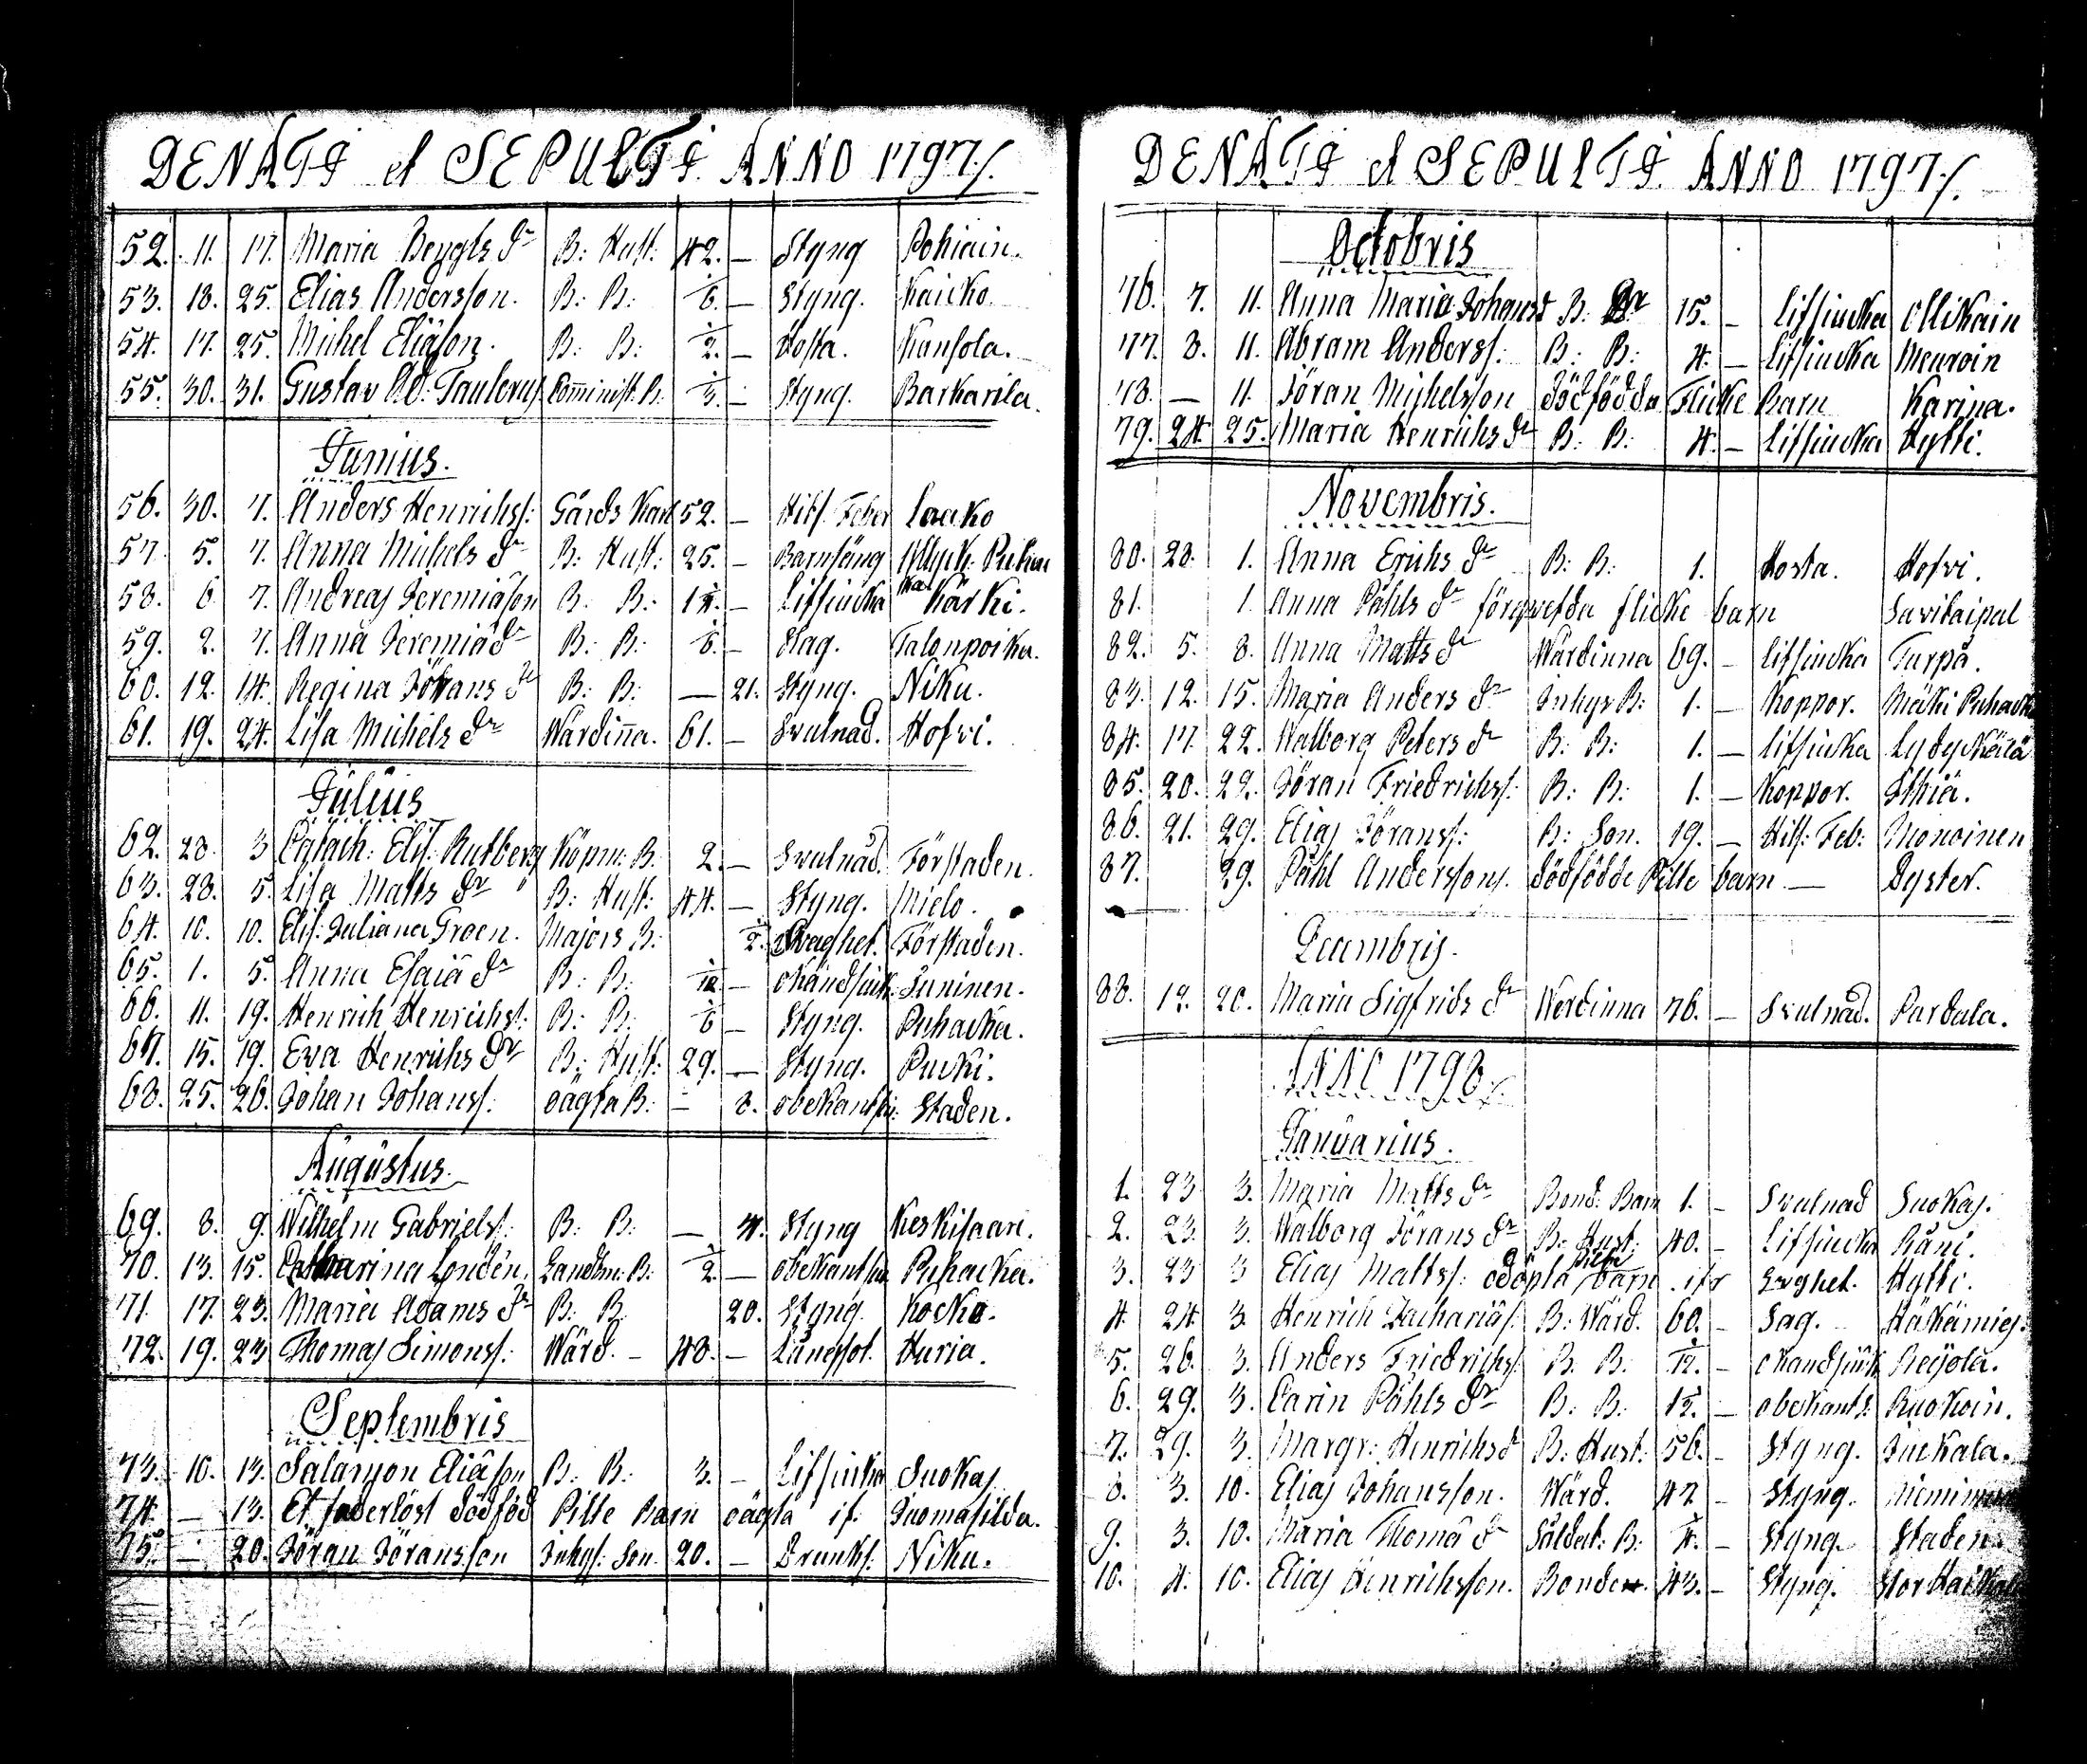 DENATI et SEPULTI ANNO 1797./.
52. 11. 17. Maria Bengts dr B: Hust: 42. — Styng Pohiain.
53. 18. 25. Elias Andersson. B: B: — Styng. Kaicko.
54. 17. 25. Michel Eliäson. B: B: — Hosta. Kansola.
55. 30. 31. Gustav Ad: Taulerus Comminist: B: — Styng. Barkarila.
Junius.
56. 30. 7. Anders Henrichs: Gårds Karl 52. — Hits. Feber Lacko
57. 5. 7. Anna Michels dr B: Hust: 25. — Barnsäng
58. 6. 7. Andreas Jeremiäson B: B: — Lifsiucka Kärki.
59. 2. 7. Anna Jeremiä dr B: B: — Slag. Talonpoika.
60. 12. 14. Regina Jörans dr B: B: — 21. Styng. Niku.
61. 19. 24. Lisa Michels dr Wärdinna. 61. — Swulnad. Hofvi.
Julius
62. 28. 3 Cathar: Elis: Rutberg Köpm: B: 2. — Swulnad. Förstaden.
63. 28. 5. Lisa Matts dr B: Hust: 44. — Styng. Mielo.
64. 10. 10. Elis: Juliana Groen. Majors B: Swaghet. Förstaden.
65. 1. 5. Anna Esaiä dr B: B: — Suninen.
66. 11. 19. Henrich Henrichs: B: B: — Styng. Puhacka.
67. 15. 19. Eva Henrichs dr B: Hust: 29. — Styng. Pucki.
68. 25. 26. Johan Johans: oägta B: — 8. Staden.
Augustus.
69. 8. 9. Wilhelm Gabriels: B: B: — 4. Styng Keskisaari.
70. 13. 15. Catharina Londén. Landtm: B: — Puhacka.
71. 17. 23. Maria Adams dr B: B. 20. Styng. Kocko.
72. 19. 23 Thomas Simons: Wärd. — 48. — Lungsot. Huria.
Septembris
73. 10. 13. Salamon Eliäson B: B: 3. — Lifsiucka Suokas
74. — 13. Et faderlöst dödföd Pilte Barn oägta if. Suomasilda.
75. — 20. Jöran Jöransson Inhys: Son. 20. — Drunks: Niku.
DENATI et SEPULTI ANNO 1797./.
Octobris
76. 7. 11. Anna Maria Johans d B: 15. — Lifsiucka Ollikain
77. 8. 11. Abram Anders: B: B: 4. — Lifsiucka Meuroin
78. — 11. Jöran Michelsson dödfödda Flicke Barn Karina.
79. 24. 25. Maria Henrichs dr B: B: 4. — Lifsiucka Hytti.
Novembris.
80. 28. 1. Anna Erichs dr B: B: 1. Hosta. Hofvi.
81. 1. Anna Påhls dr förqwefda flicke barn Savitaipal
82. 5. 8. Anna Matts dr Wärdinna 69. — Lifsiucka Turpa.
83. 12. 15. Maria Anders dr Inhys B: 1. — Koppor.
84. 17. 22. Walborg Peters dr B: B: 1. — Lifsiucka
85. 20. 22. Jöran Friedrichs: B: B: 1. — Koppor. Ithiä.
86. 21. 29. Elias Jörans: B: Son. 19. — Hits: Feb: Monoinen
87. 29. Påhl Anderssons. dödfödde Pilte barn — Dyster.
Decembris.
88. 12. 20. Maria Sigfrids dr Werdinna 76. — Swulnad. Pardala.
ANNO 1798./.
Januarius.
1. 23 3. Maria Matts dr Bond: Barn 1. — Swulnad Suokas.
2. 23. 3. Walborg Jörans dr B: Hust: 40. — Lifsiucka Räni.
3. 23 3 Elias Matts: odöpta Pilte barn. ifr Swghet. Hytti.
4. 24 3. Henrich Zachariäs: B: Wärd. 60. — Slag. Häkämies.
5. 26. 3. Anders Friedrichs: B: B: — Reijola.
6. 29. 3. Carin Påhls dr B: B: — obekant s: Ruokoin.
7. 29. 3. Margr: Henrichs d B: Hust: 56. — Styng. Juckala.
8. 3. 10. Elias Johansson. Wärd. 47 — Styng.
9. 3. 10. Maria Thomä d Soldat: B: — Styng. Staden.
10. 4. 10. Elias Henrichsson. Bonde. 43. — Styng.